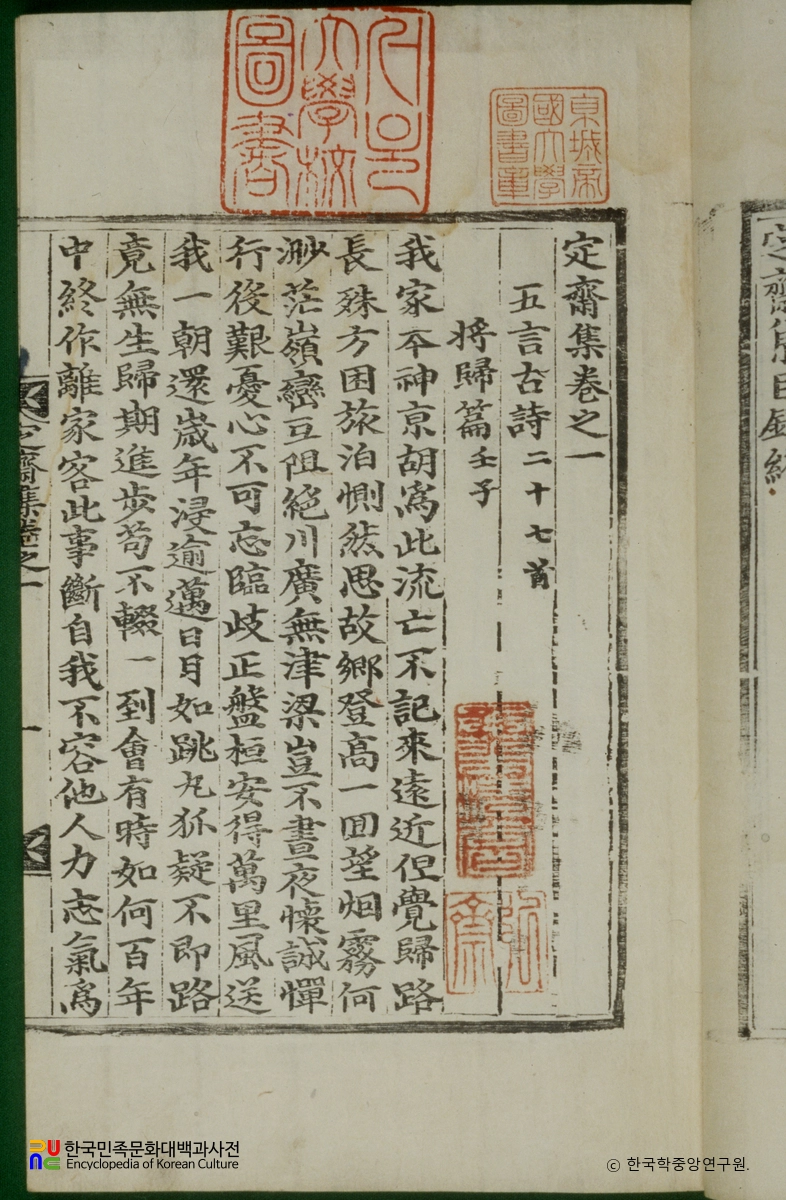 定齋集卷之一
五言古詩二十七首
將歸篇壬子
我家本神京胡爲此流亡不記來遠近但覺歸路
長殊方困旅泊惻然思故鄉登高一回望烟霧何
渺茫嶺巒互阻絶川廣無津梁豈不晝夜懷誠憚
行後艱憂心不可忘臨歧正盤桓安得萬里風送
我一朝還歲年浸逾邁日月如跳丸狐疑不即路
竟無生歸期進步苟不輟一到會有時如何百年
中終作離家客此事斷自我不容他人力志氣爲
定齋集卷之一
一
京城帝
國大學
圖書章
大學校
圖書
한국민족문화대백과사전
Encyclopedia of Korean Culture
© 한국학중앙연구원.